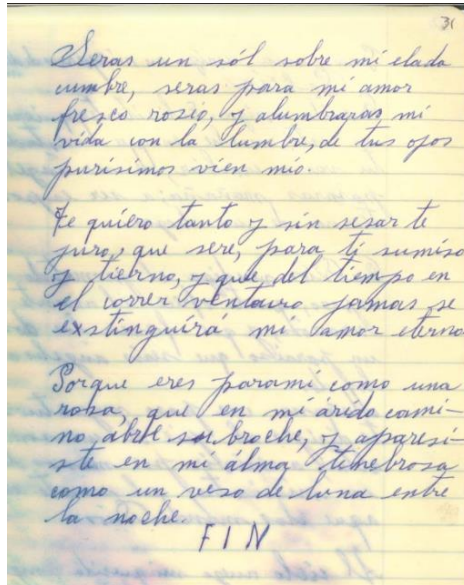 31
Seras un sól sobre mi elada
cumbre, seras para mi amor
fresco rosio, y alumbraras mi
vida con la lumbre, de tus ojos
purisimos vien mio.
Te quiero tanto y sin sesar te
juro, que sere, para ti sumiso
y tierno, y que del tiempo en
el correr venturo jamas se
exstinguirá mi amor eterno
Porque eres parami como una
rosa, que en mi árido cami-
no, ábre su broche, y aparesi-
ste en mi álma tenebrosa
como un veso de luna entre
la noche.
FIN